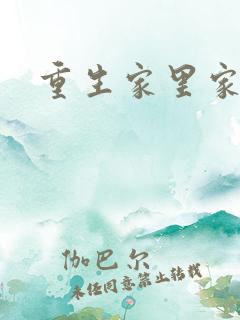 重生家里家
伽巴尔
未经同意禁止转载